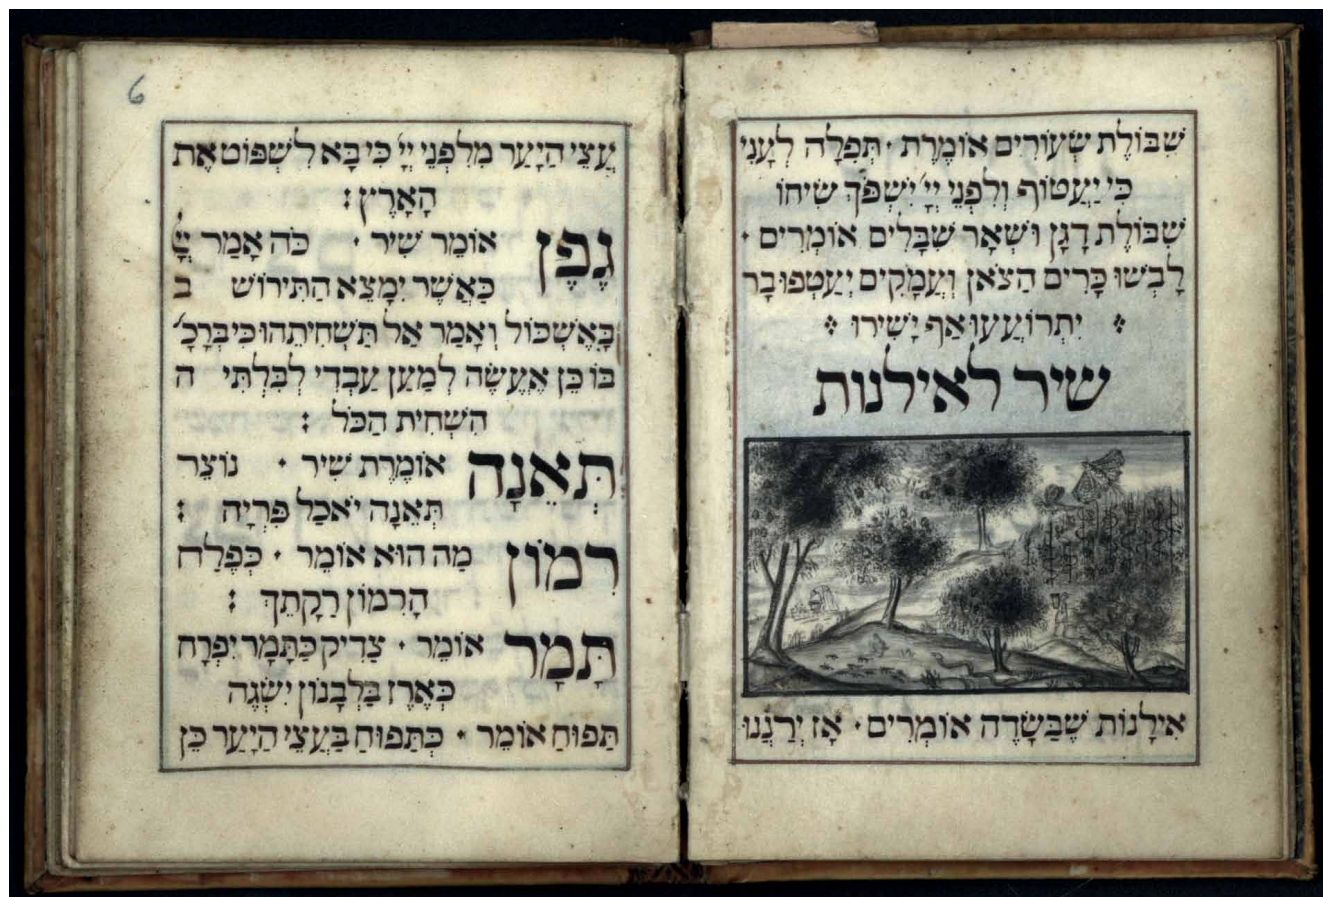 שִׁבּוֹלֶת שְׂעוֹרִים אוֹמֶרֶת · תְּפִלָה לְעָנִי
כִי יַעֲטוֹף וְלִפְנֵי יְיָ יִשְׁפֹּךְ שִׂיחוֹ
שִׁבּוֹלֶת דָגָן וּשְׁאָר שִׁבָּלִים אוֹמְרִים ·
לָבְשׁוּ כָּרִים הַצֹאן וְעֲמָקִים יַעַטְפוּ בָר
יִתְרוֹעֲעוּ אַף יָשִׁירוּ
שיר לאילנות
אִילָנוֹת שֶׁבַּשָׂדֶה אוֹמְרִים · אָז יְרַנֲנוּ
6
עֲצֵי הַיָעַר מִלִּפְנֵי יְיָ כִּי בָּא לִשְׁפּוֹט אֶת
הָאָרֶץ :
גֶפֶן אוֹמֵר שִׁיר · כֹּה אָמַר יְיָ
כַּאֲשֶׁר יִמָצֵא הַתִּירוֹשׁ ב
בָּאֶשְׁכּוֹל וְאָמַר אַל תַּשְׁחִיתֵהוּ כִּי בְרָכָ׳
בּוֹ כֵּן אֶעֱשֶׂה לְמַעַן עַבְדִי לְבִלְתִּי ה
הִשְׁחִית הַכֹּל :
תְּאֵנָה אוֹמֶרֶת שִׁיר · נוֹצֵר
תְּאֵנָה יֹאכַל פִּרְיָה :
רִמוֹן מַה הוּא אוֹמֵר · כְּפֶלַח
הָרִמוֹן רַקָתֵךְ :
תָּמָר אוֹמֵר · צַדִיק כַּתָּמָר יִפְרָח
כְּאֶרֶז בַּלְבָנוֹן יִשְׂגֶה
תַּפוּחַ אוֹמֵר · כְּתַפוּחַ בַּעֲצֵי הַיַעַר כֵּן